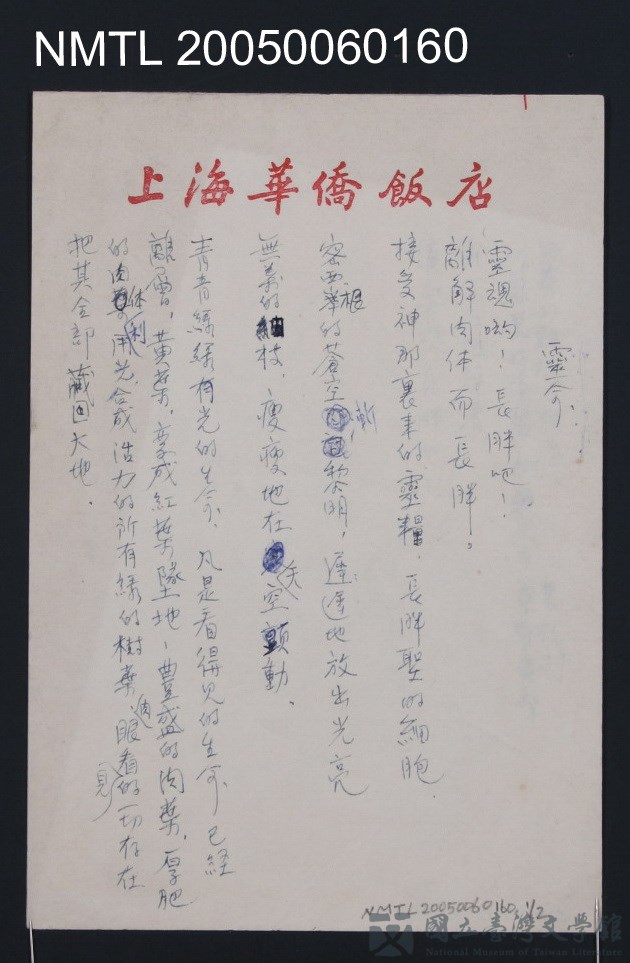 NMTL 20050060160
上海華僑飯店
靈命.
靈魂喲！長胖吧！
離解肉体而長胖。
接受神那裏來的靈糧 長胖聖的細胞.
密西根的蒼空 黎明，遲遲地放出光亮
無義的枝，瘦瘦地在天空顫動.
青青綠綠有光的生命. 凡是看得見的生命. 已経
離層，黃葉，变成紅葉墜地，豊盛的肉葉，厚肥
的肉体利用光合成活力的所有緑的樹葉 肉眼看見的一切存在
把其全部藏回大地.
NMTL 20050060160 1/2
國立臺灣文學館
National Museum of Taiwan Literature